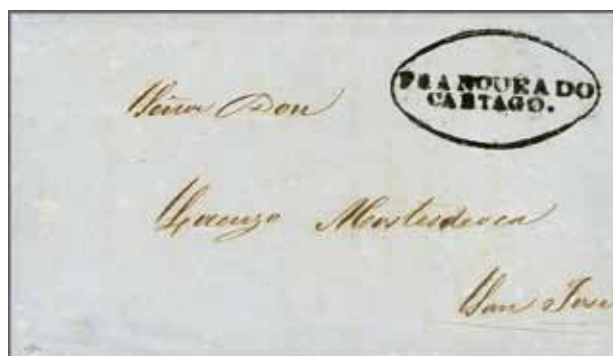 FRANQUEADO
CARTAGO.
Señor Don
Lorenzo Montesdeoca
San José